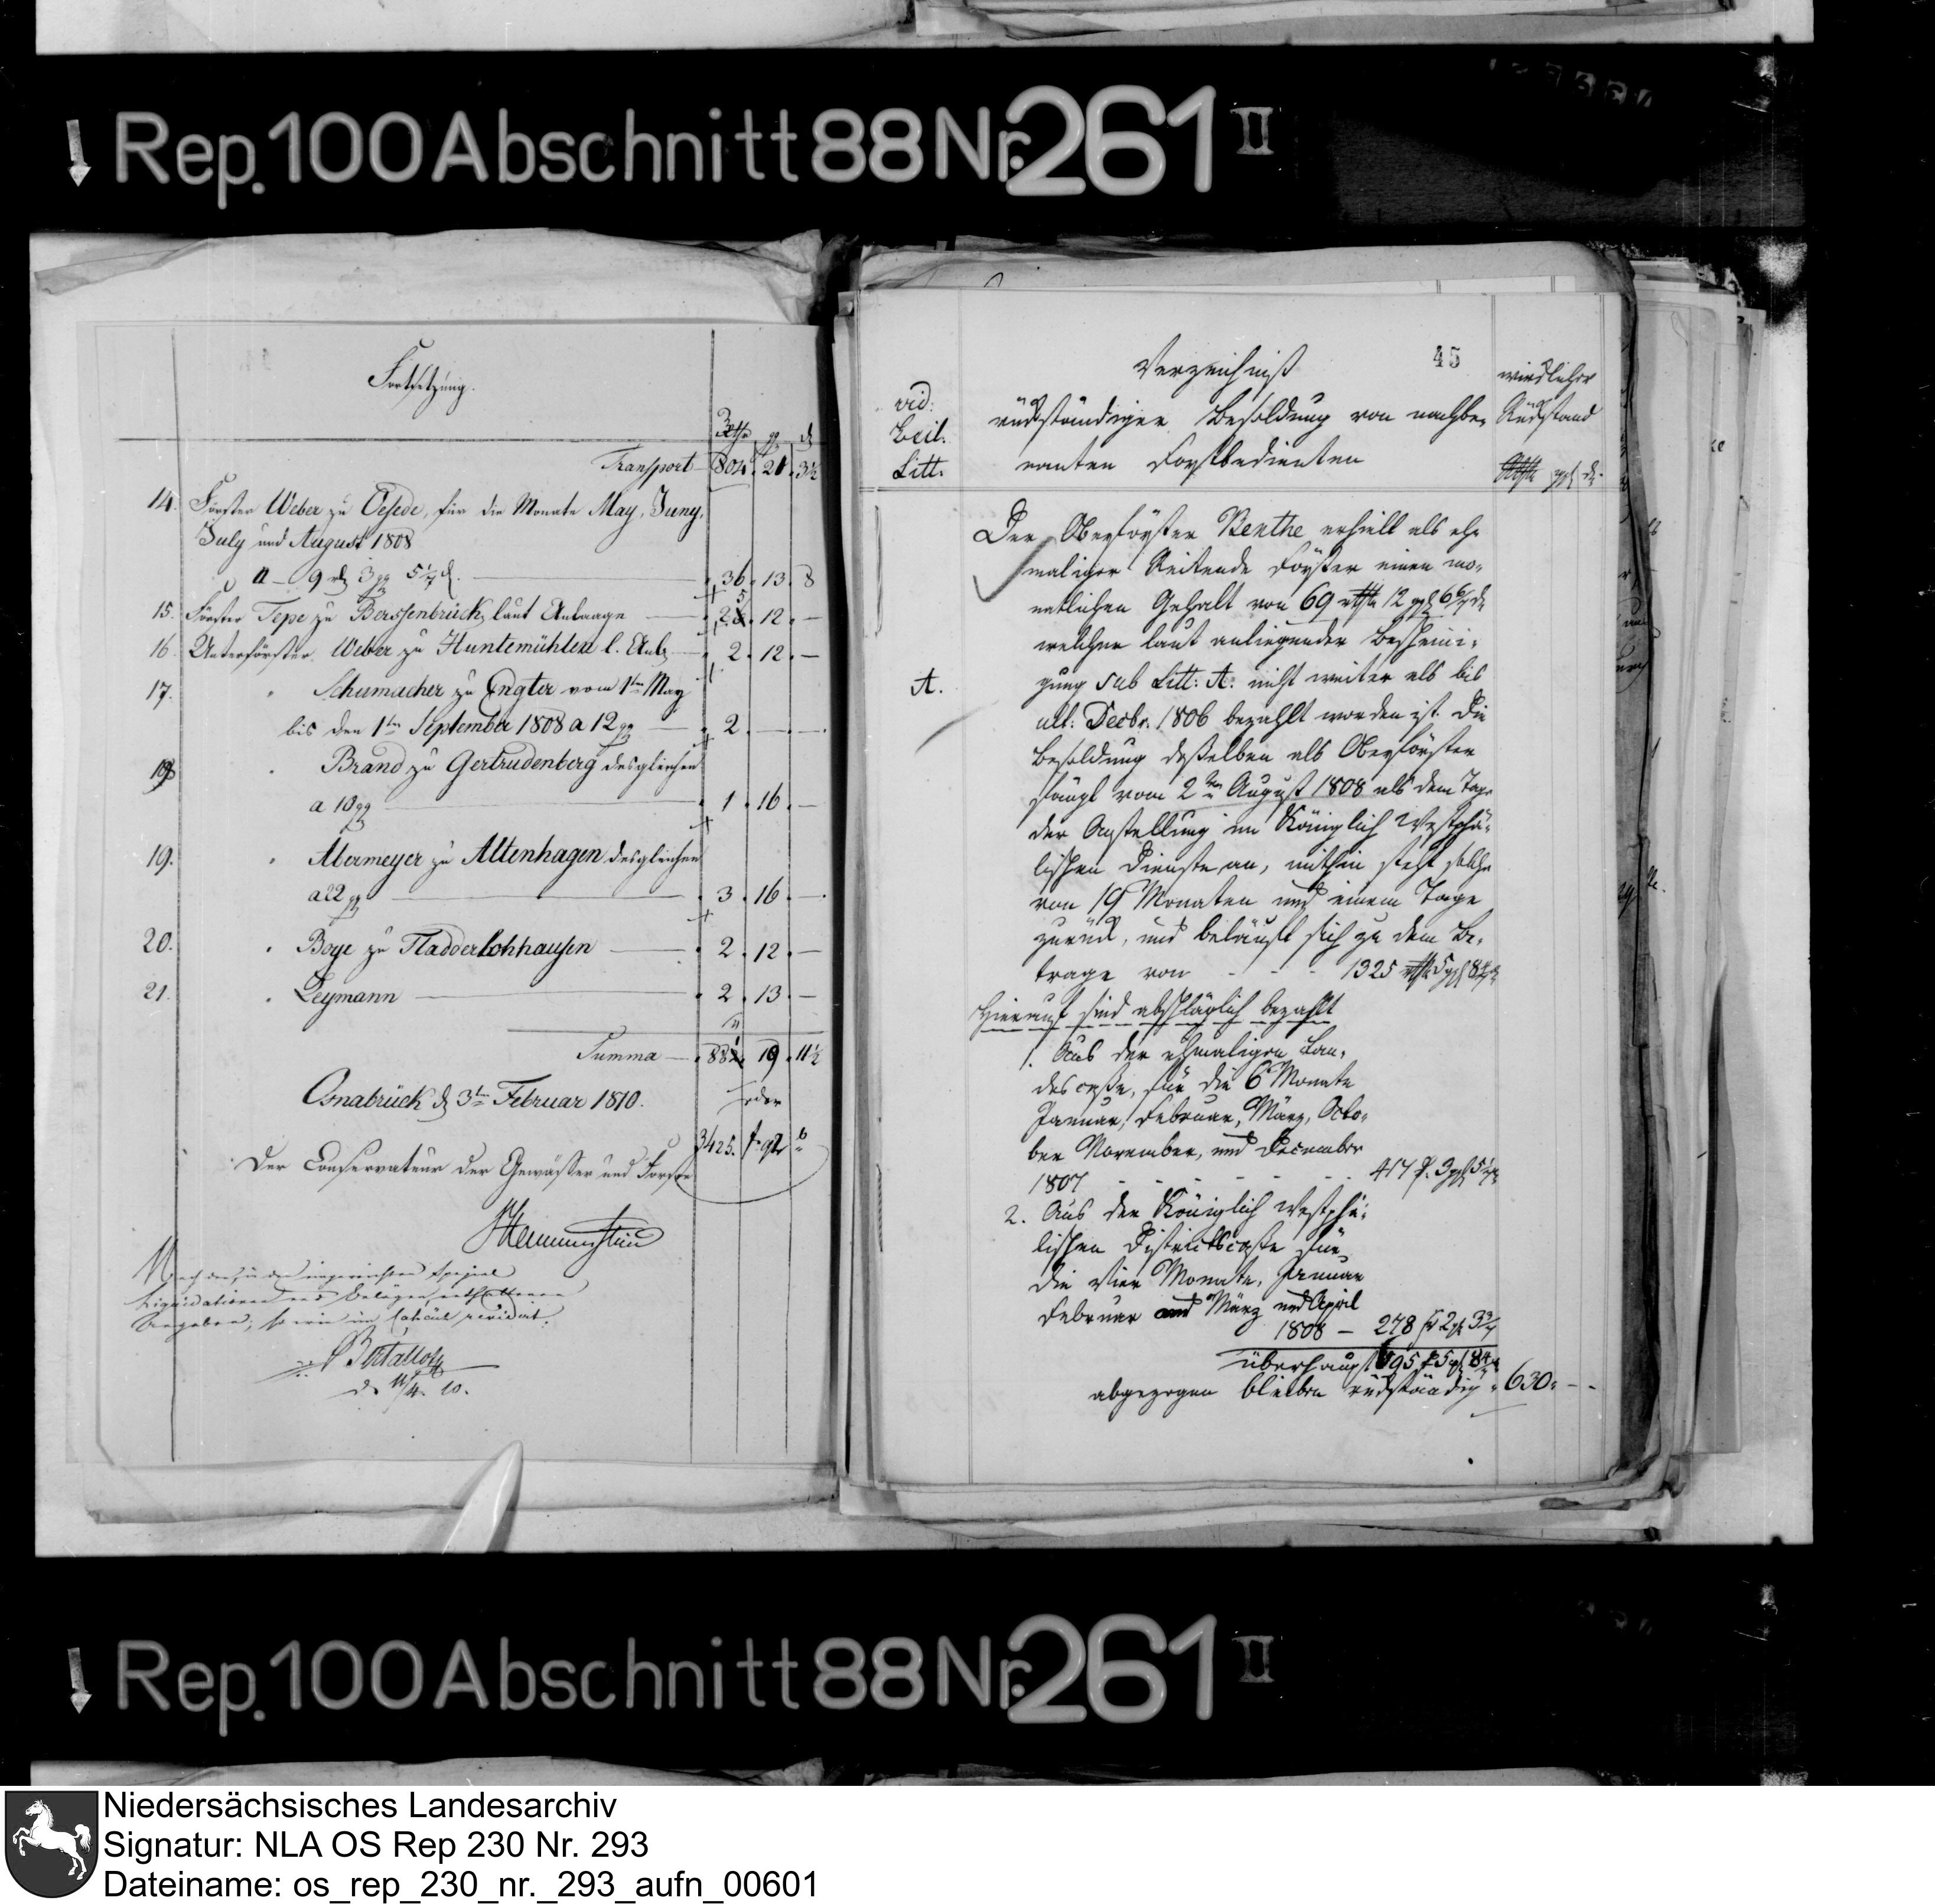 Rep. 100 Abschnitt 88 Nr. 261 II
Fortsetzung.
Rthr gg d
Transport 804. 21. 3½
14. Förster Weber zu Oesede, für die Monate May, Juny,
July und August 1808
a 9 rt 3 gg 5 1/7 d. 36. 13. 8
15. Förster Tepe zu Berssenbrück laut Anlaage 25. 12. —
16. Unterförster Weber zu Huntemühlen l. Anl. 2. 12. —
17. " Schumacher zu Engter vom 1ten May
bis den 1ten September 1808 a 12 gg 2. — . —
18. " Brand zu Gertrudenberg desgleichen
a 10 gg 1. 16. —
19. " Abermeyer zu Altenhagen desgleichen
a 22 gg 3. 16. —
20. " Boye zu Fladderlohhausen 2. 12. —
21. " Leymann 2. 13. —
Summa 881. 19. 11½
Osnabrück d 3ten Februar 1810.
oder
3425. f 92 b
Der Conservateur der Gewässer und Forste
Nach den, in den eingereichten Spezial
Liquidationen und Belägen enthaltenen
Angaben, so wie im Calcül revidirt.
d. 11/4. 10.
45
vid:
Beil.
Litt.
Verzeichniß
rückständiger Besoldung von nachbe-
nanten Forstbedienten
wirklicher
Rückstand
Rthlr ggl d.
Der Oberförster Benthe erhielt als ehe
maliger Reitende Förster einen mo-
natlichen Gehalt von 69 rthlr 12 ggl 6 6/7 d
welcher laut anliegender Bescheini-
A.
gung sub Litt: A. nicht weiter als bis
ult: Decbr. 1806 bezahlt worden ist. Die
Besoldung deßelben als Oberförster
fängt vom 2ten August 1808 als dem Tage
der Anstellung im Königlich Westphä-
lischen Dienste an, mithin steht solche
von 19 Monaten und einem Tage
zurück, und beläuft sich zu dem Be-
trage von - - - 1325 rthlr 5 ggl 8 4/7 d
Hierauf sind abschläglich bezahlt
1. Aus der ehmaligen Lan-
des casse, für die 6 Monate
Januar, Februar, März, Octo-
ber November, und December
1807 - - - - - - 417 f. 3 ggl 5 1/7 d
2. Aus der Königlich Westphä-
lischen Districtscasse für
die vier Monate, Januar
Februar und März und April
1808 — 278 f 2 gl 3 3/7
überhaupt 695 f 5 gl 8 4/7
abgezogen bleiben rückständig " 630. - -
Rep. 100 Abschnitt 88 Nr. 261 II
Niedersächsisches Landesarchiv
Signatur: NLA OS Rep 230 Nr. 293
Dateiname: os_rep_230_nr._293_aufn_00601